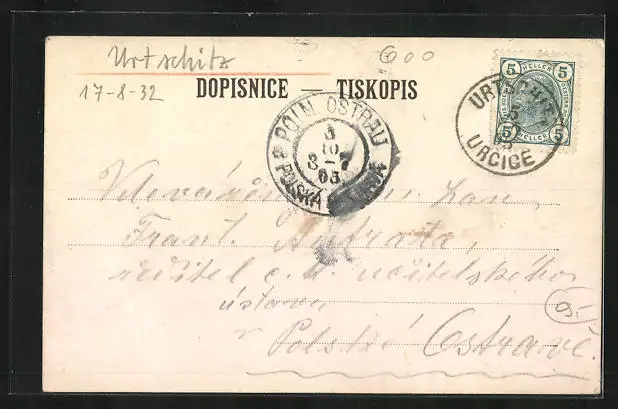 Urtschitz
17-8-32
600
DOPISNICE — TISKOPIS
5 HELLER 5
5 HELLER 5
URTSCHITZ
URČICE
POLN. OSTRAU
3
10
3-7
05
POLSKÁ OSTRAVA
pan
Frant.
ředitel c. k. učitelského
ústavu
v Polské Ostravě.